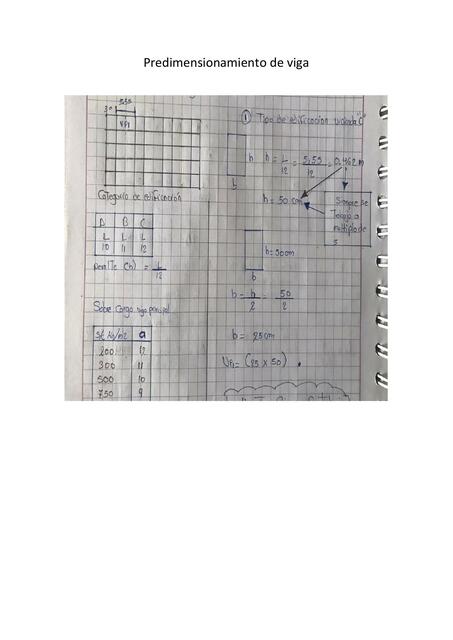 Predimensionamiento de viga
5.55
30
VP1
Categoria de edificación
A B C
L L L
10 11 12
(h) = L
12
Sobre carga viga principal
S/C kg/m2 a
200 12
300 11
500 10
750 9
① Tipo de edificación vivienda "C"
h h = L = 5,55 = 0,462 m
12 12
b
h = 50 cm
Siempre se
múltiplo de
5
h = 50cm
b
b = h = 50
2 2
b = 25cm
VP1 = (25 x 50)